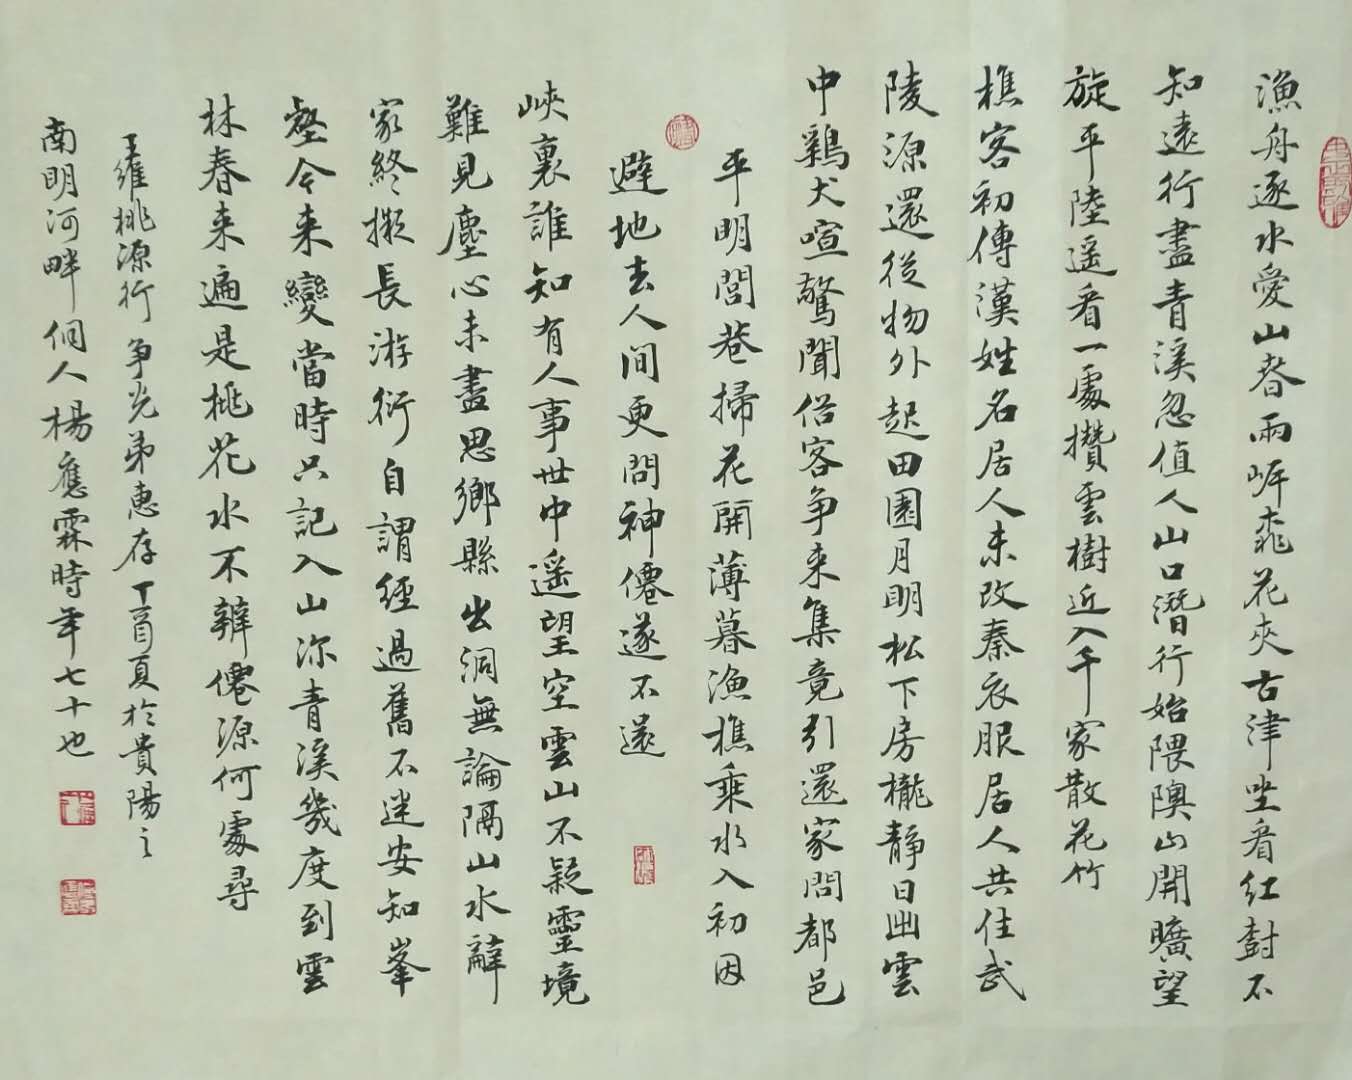 漁舟逐水愛山春兩岸桃花夾古津坐看紅樹不
知遠行盡青溪忽值人山口潛行始隈隩山開曠望
旋平陸遥看一處攢雲樹近入千家散花竹
樵客初傳漢姓名居人未改秦衣服居人共住武
陵源還從物外起田園月明松下房櫳静日出雲
中鷄犬喧驚聞俗客争来集竟引還家問都邑
平明閭巷掃花開薄暮漁樵乘水入初因
避地去人間更問神僊遂不還
峽裏誰知有人事世中遥望空雲山不疑靈境
難見塵心未盡思鄉縣出洞無論隔山水辭
家終擬長游衍自謂經過舊不迷安知峯
壑今来變當時只記入山深青溪幾度到雲
林春来遍是桃花水不辨僊源何處尋
王維桃源行 争光弟惠存丁酉夏於貴陽之
南明河畔侗人楊應霖時年七十也